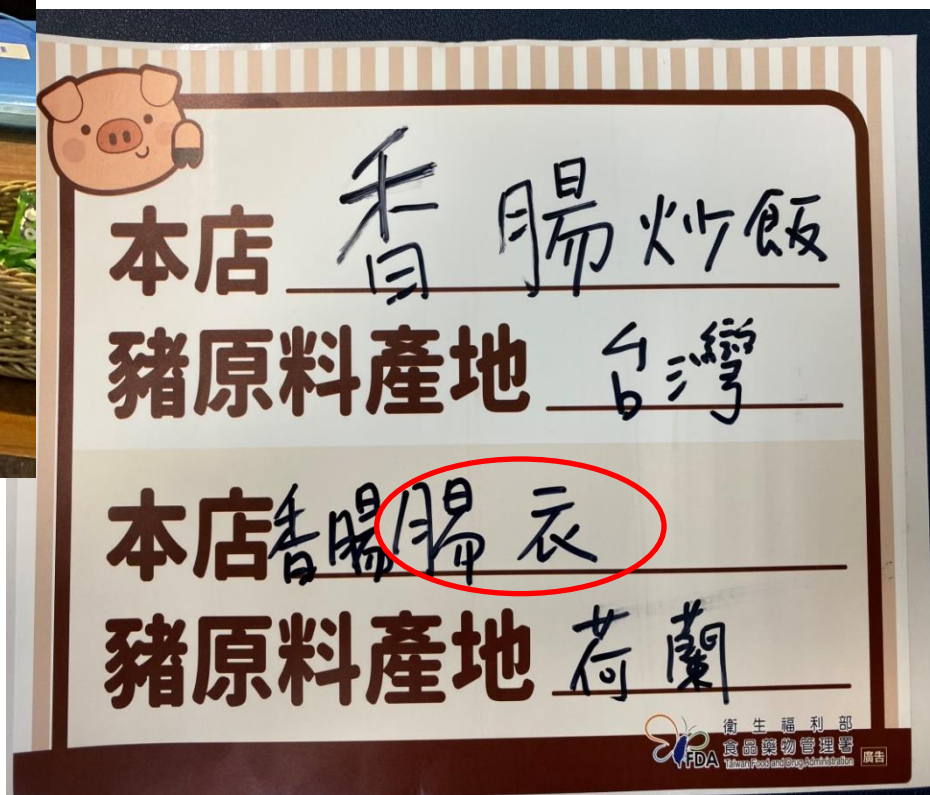 本店 香腸炒飯
豬原料產地 台灣
本店香腸腸衣
豬原料產地 荷蘭
衛生福利部
食品藥物管理署
TFDA Taiwan Food and Drug Administration
廣告